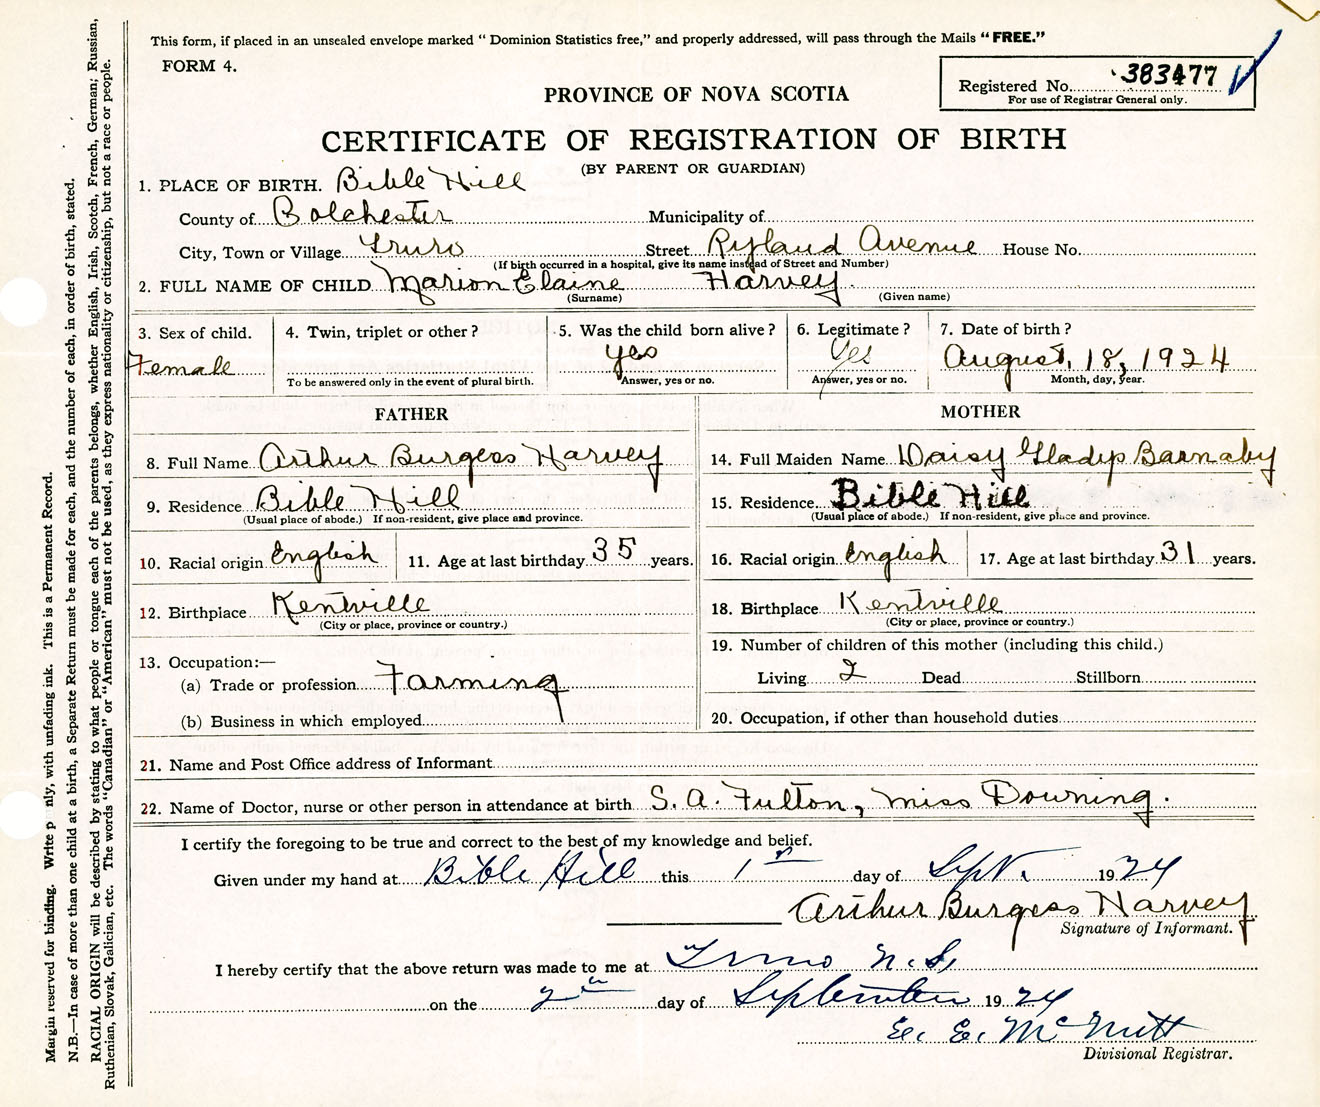 This form, if placed in an unsealed envelope marked “ Dominion Statistics free,” and properly addressed, will pass through the Mails “ FREE.”
FORM 4.
Registered No. 383477
For use of Registrar General only.
PROVINCE OF NOVA SCOTIA
CERTIFICATE OF REGISTRATION OF BIRTH
(BY PARENT OR GUARDIAN)
1. PLACE OF BIRTH. Bible Hill
County of Bolchester Municipality of
City, Town or Village Truro Street Ryland Avenue House No.
(If birth occurred in a hospital, give its name instead of Street and Number)
2. FULL NAME OF CHILD Marion Elaine Harvey.
(Surname) (Given name)
3. Sex of child. 4. Twin, triplet or other ? 5. Was the child born alive ? 6. Legitimate ? 7. Date of birth ?
Female yes Yes August, 18, 1924
To be answered only in the event of plural birth. Answer, yes or no. Answer, yes or no. Month, day, year.
FATHER
8. Full Name Arthur Burgess Harvey
9. Residence Bible Hill
(Usual place of abode.) If non-resident, give place and province.
10. Racial origin English 11. Age at last birthday 35 years.
12. Birthplace Kentville
(City or place, province or country.)
13. Occupation:—
(a) Trade or profession Farming
(b) Business in which employed
MOTHER
14. Full Maiden Name Daisy Gladys Barnaby
15. Residence Bible Hill
(Usual place of abode.) If non-resident, give place and province.
16. Racial origin English 17. Age at last birthday 31 years.
18. Birthplace Kentville
(City or place, province or country.)
19. Number of children of this mother (including this child.)
Living 2 Dead Stillborn
20. Occupation, if other than household duties
21. Name and Post Office address of Informant
22. Name of Doctor, nurse or other person in attendance at birth S. A. Fulton, Miss Downing.
I certify the foregoing to be true and correct to the best of my knowledge and belief.
Given under my hand at Bible Hill this 1st day of Sept. 1924
Arthur Burgess Harvey
Signature of Informant.
I hereby certify that the above return was made to me at Truro N.S,
on the 2nd day of September 1924
E. E. McNutt
Divisional Registrar.
Margin reserved for binding. Write p nly, with unfading ink. This is a Permanent Record.
N.B.—In case of more than one child at a birth, a Separate Return must be made for each, and the number of each, in order of birth, stated.
RACIAL ORIGIN will be described by stating to what people or tongue each of the parents belongs, whether English, Irish, Scotch, French, German; Russian,
Ruthenian, Slovak, Galician, etc. The words “Canadian” or “American” must not be used, as they express nationality or citizenship, but not a race or people.